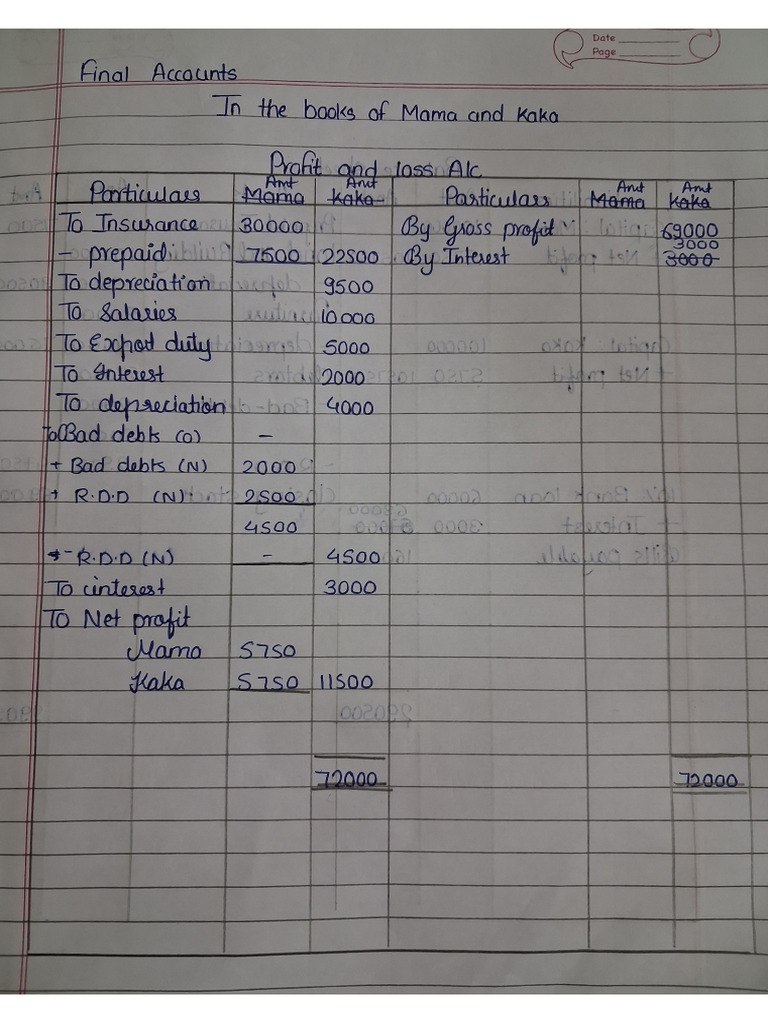 Date
Page
Final Accounts
In the books of Mama and Kaka
Profit and loss A/c
Particulars Amt Mama Amt Kaka Particulars Amt Mama Amt Kaka
To Insurance 30000 By Gross profit 69000
- prepaid 7500 22500 By Interest 3000 3000
To depreciation 9500
To Salaries 10000
To Expot duty 5000
To Interest 2000
To depreciation 4000
To Bad debts (O) -
+ Bad debts (N) 2000
+ R.D.D (N) 2500
4500
- R.D.D (N) - 4500
To interest 3000
To Net profit
Mama 5750
Kaka 5750 11500
72000 72000